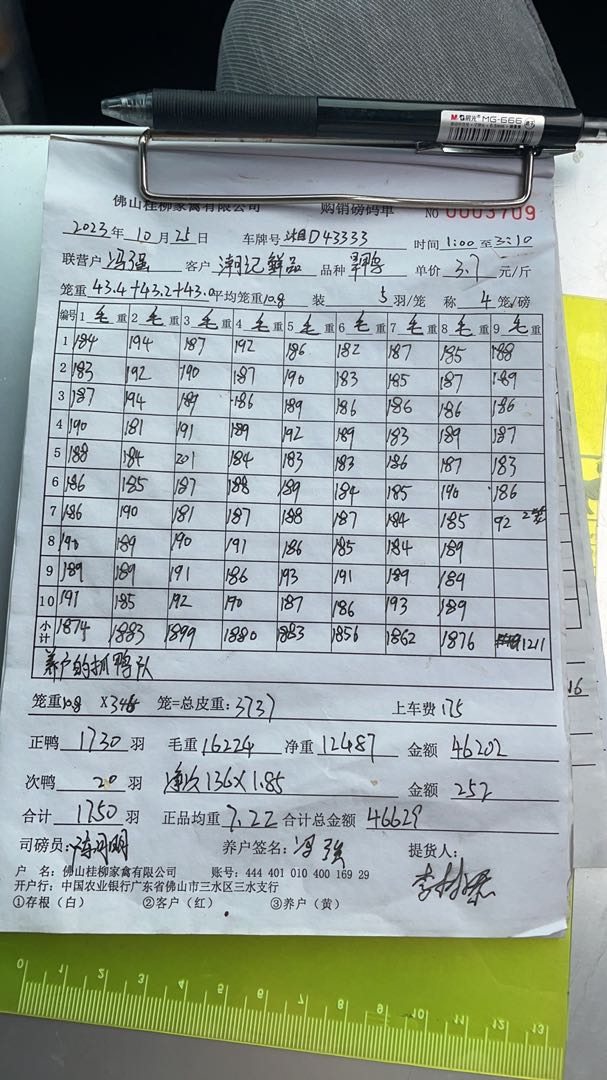 M&G 晨光 MG-666
佛山桂柳家禽有限公司 购销磅码单 NO 0003709
2023年 10月25日 车牌号 湘D43333 时间 1:00 至 3:10
联营户 冯强 客户 潮记鲜品 品种 鸭 单价 3.7 元/斤
笼重 43.4+43.2+43.0 平均笼重10.8 装 5 羽/笼 称 4 笼/磅
编号 1 毛 重 2 毛 重 3 毛 重 4 毛 重 5 毛 重 6 毛 重 7 毛 重 8 毛 重 9 毛 重
1 184 194 187 192 186 182 187 185 188
2 183 192 190 187 190 183 185 187 189
3 187 194 189 186 189 186 186 186 186
4 190 181 191 189 192 189 183 189 187
5 188 184 201 184 183 183 186 187 183
6 186 185 187 188 189 184 185 190 186
7 186 190 181 187 188 187 184 185 92 2笼
8 190 189 190 191 186 185 184 189
9 189 189 191 186 193 191 189 189
10 191 185 192 190 187 186 193 189
小计 1874 1883 1899 1880 1883 1856 1862 1876 1211
养户的抓鸭队
笼重10.8 X346 笼=总皮重: 3737 上车费 175
正鸭 1730 羽 毛重 16224 净重 12487 金额 46202
次鸭 20 羽 136X1.85 金额 252
合计 1750 羽 正品均重 7.22 合计总金额 46629
司磅员: 养户签名: 冯强 提货人:
户 名: 佛山桂柳家禽有限公司 账号: 444 401 010 400 169 29
开户行: 中国农业银行广东省佛山市三水区三水支行
①存根（白） ②客户（红） ③养户（黄）
16
0 1 2 3 4 5 6 7 8 9 10 11 12 13